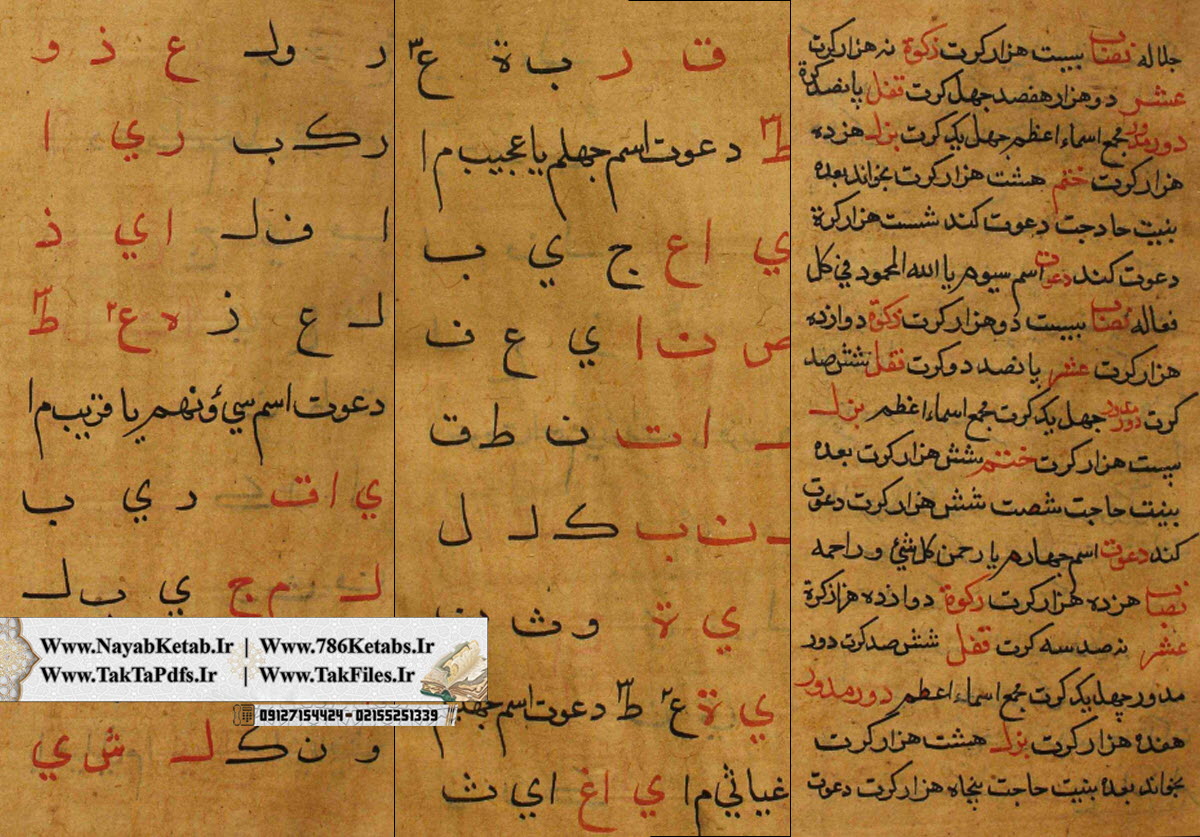 جلاله نصاب بیست هزار کرت زکوة نه هزار کرت
عشر دو هزار هفصد جهل کرت قفل پانصد کرة
دور مدور مجمع اسماء اعظم جهل یک کرت بزل هزده
هزار کرت ختم هشت هزار کرت بخواند بعده
بنیت حاجت دعوت کند شست هزار کرة
دعوت کند دعوت اسم سیوم یا الله المحمود في کل
فعاله نصاب بیست دو هزار کرت زکوة دوازده
هزار کرت عشر پانصد دو کرت قفل شش صد
کرت دور مدور جهل یک کرت مجمع اسماء اعظم بزل
بیست هزار کرت ختم شش هزار کرت بعده
بنیت حاجت شصت شش هزار کرت دعوت
کند دعوت اسم جهارم یا رحمن کل شئ و راحمه
نصاب هزده هزار کرت زکوة دوازده هزار کرة
عشر نه صد سه کرت قفل شش صد کرت دور
مدور چهل یک کرت مجمع اسماء اعظم دور مدور
هفده هزار کرت بزل هشت هزار کرت
بخواند بعده بنیت حاجت پنجاه هزار کرت دعوت
ق ر ب ة ع ٣
ط دعوت اسم جهلم یا عجیب م ا
ي ا ع ج ي ب
ص ن ا ي ع ف
ا ت ن ط ق
ن ب ک ل ل
ي ة و ث
ي ة ع ط دعوت اسم
غیاثي م ا ي ا غ ا ي ث
ر و ل ع ذ و
ر ک ب ر ي ا
ا ف ل ا ي ذ
ل ع ز ه ع ط
دعوت اسم سي ؤ نهم یا قریب م ا
ي ا ق ر ي ب
ل م ج ي ب ل
Www.NayabKetab.Ir | Www.786Ketabs.Ir
Www.TakTaPdfs.Ir | Www.TakFiles.Ir
09127154424 - 02155251339
و ن ک ل ش ي